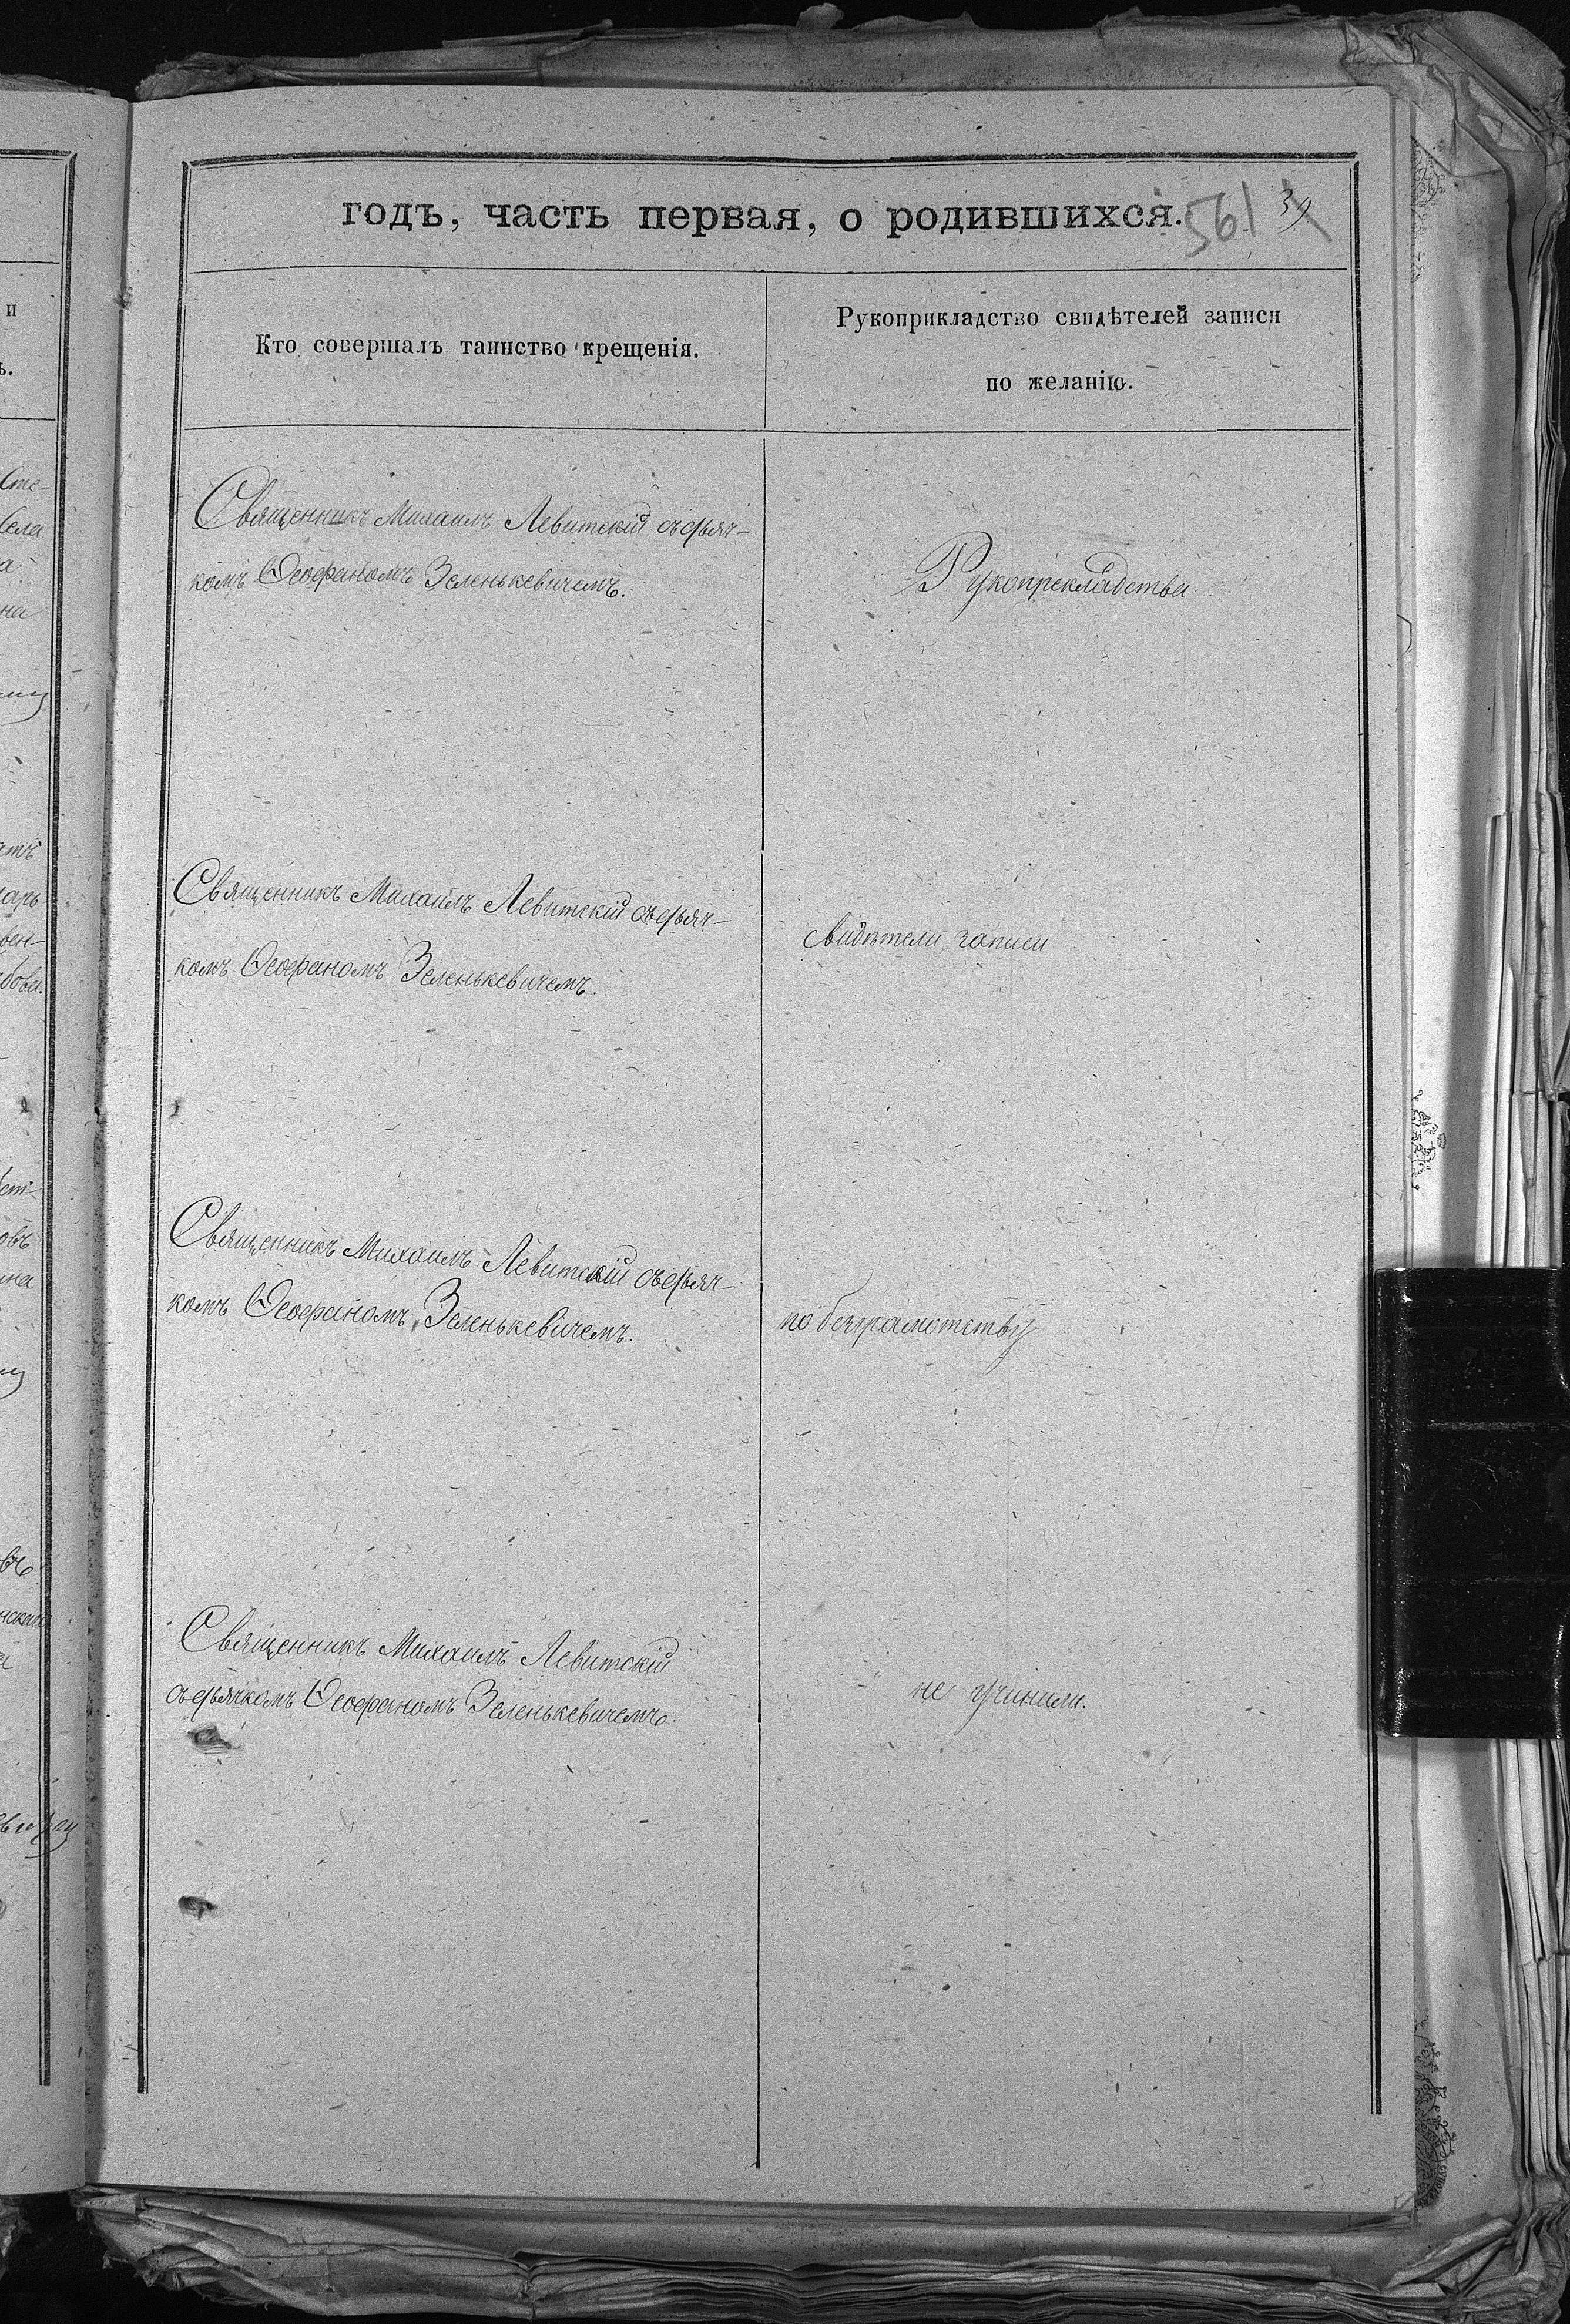 годъ, часть первая, о родившихся.
561
39
Кто совершалъ таинство крещенія.
Рукоприкладство свидѣтелей записи
по желанію.
Священникъ Михаилъ Левитскій съ дьяч-
комъ Ѳеофаномъ Зеленькевичемъ.
Рукопрекладства
Священникъ Михаилъ Левитскій съ дьяч-
комъ Ѳеофаномъ Зеленькевичемъ.
свидѣтели записи
Священникъ Михаилъ Левитскій съ дьяч-
комъ Ѳеофаномъ Зеленькевичемъ.
по безграмотству
Священникъ Михаилъ Левитскій
съ дьячкомъ Ѳеофаномъ Зеленькевичемъ.
не учинили.